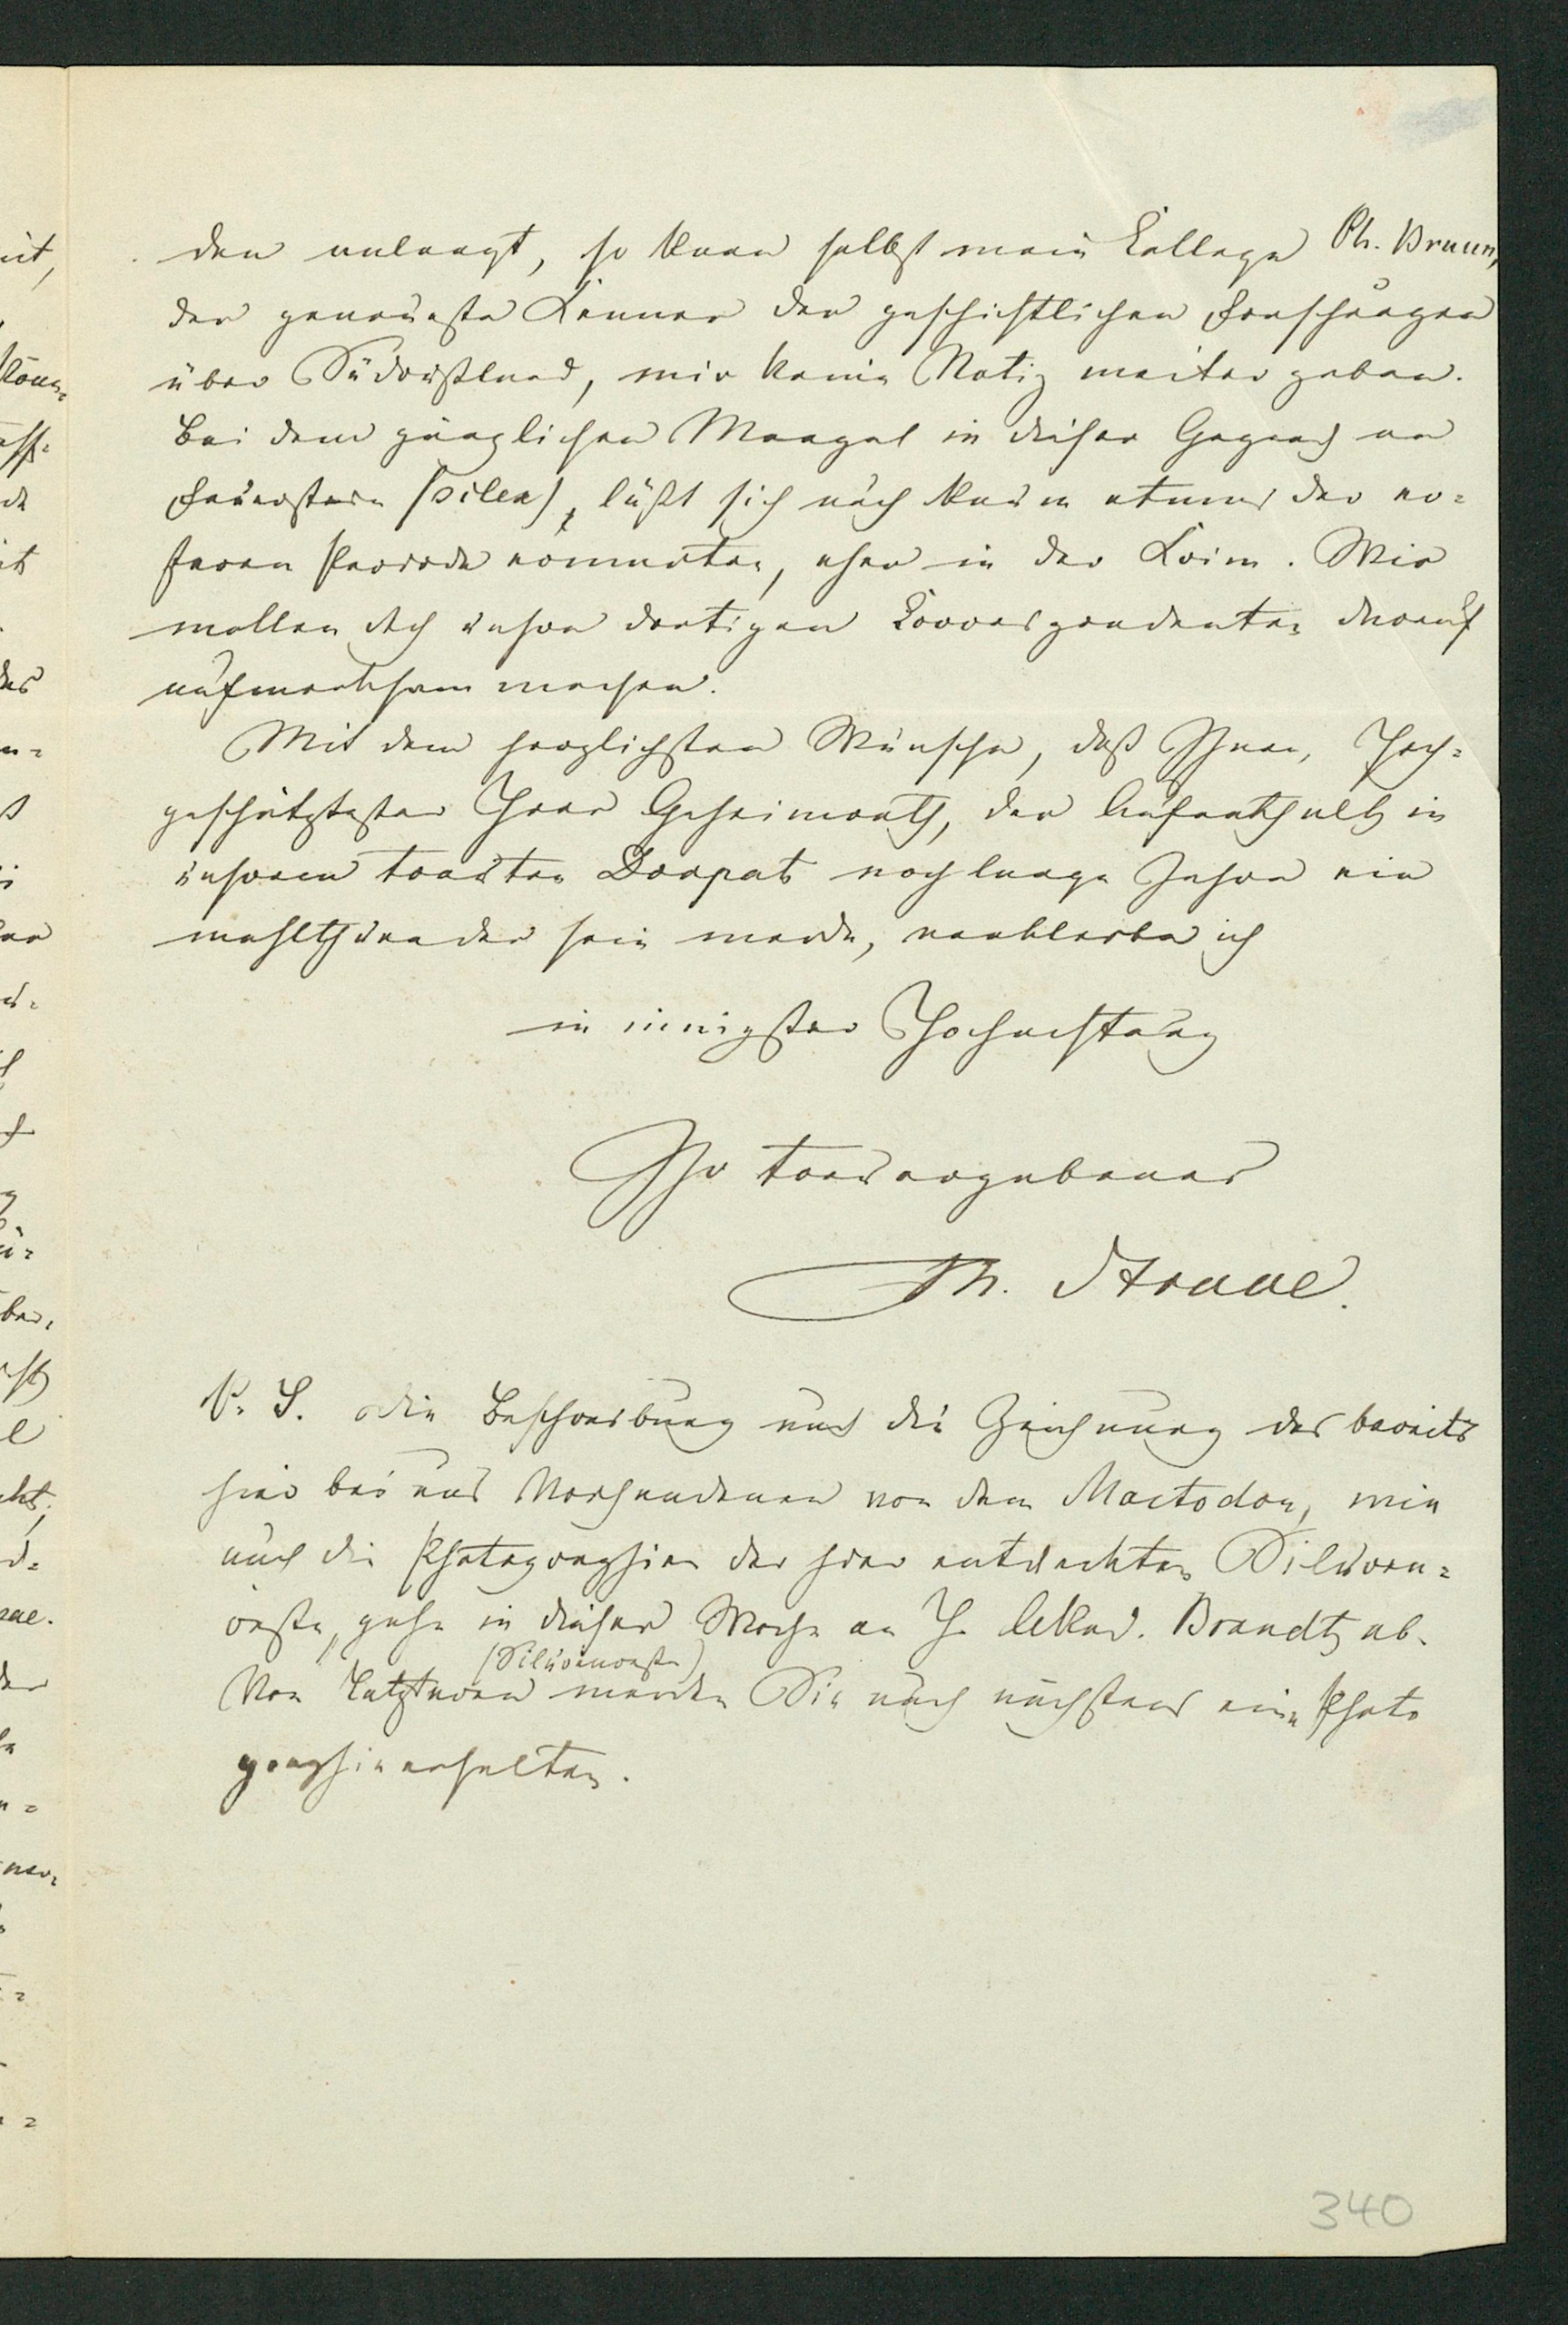 den anlangt, so kann selbst mein College Ph. Bruun,
der genaueste Kenner der geschichtlichen Forschungen
über Südrußland, mir keine Notiz weiter geben.
Bei dem gänzlichen Mangel in dieser Gegend an
Feuerstein (silex), läßt sich auch kaum etwas der er=
steren Periode erwarten, eher in der Krim. Wir
wollen doch unsre dortigen Correspondenten darauf
aufmerksam machen.
Mit dem herzlichsten Wunsche, daß Ihnen, Hoch=
geschätztester Herr Geheimrath, der Aufenthalt in
unserem trauten Dorpat noch lange Jahre ein
wohlthuender sein werde, verbleibe ich
in innigster Hochachtung
Ihr treuergebener
Th. Struve.
P. S. Die Beschreibung und die Zeichnung des bereits
hier bei uns Vorhandenen von dem Mastodon, wie
auch die Photographien der hier entdeckten
gehe in dieser Woche an H. Akad. Brandt ab.
Von Letzteren werden Sie auch nächstens eine Photo
graphie erhalten.
340